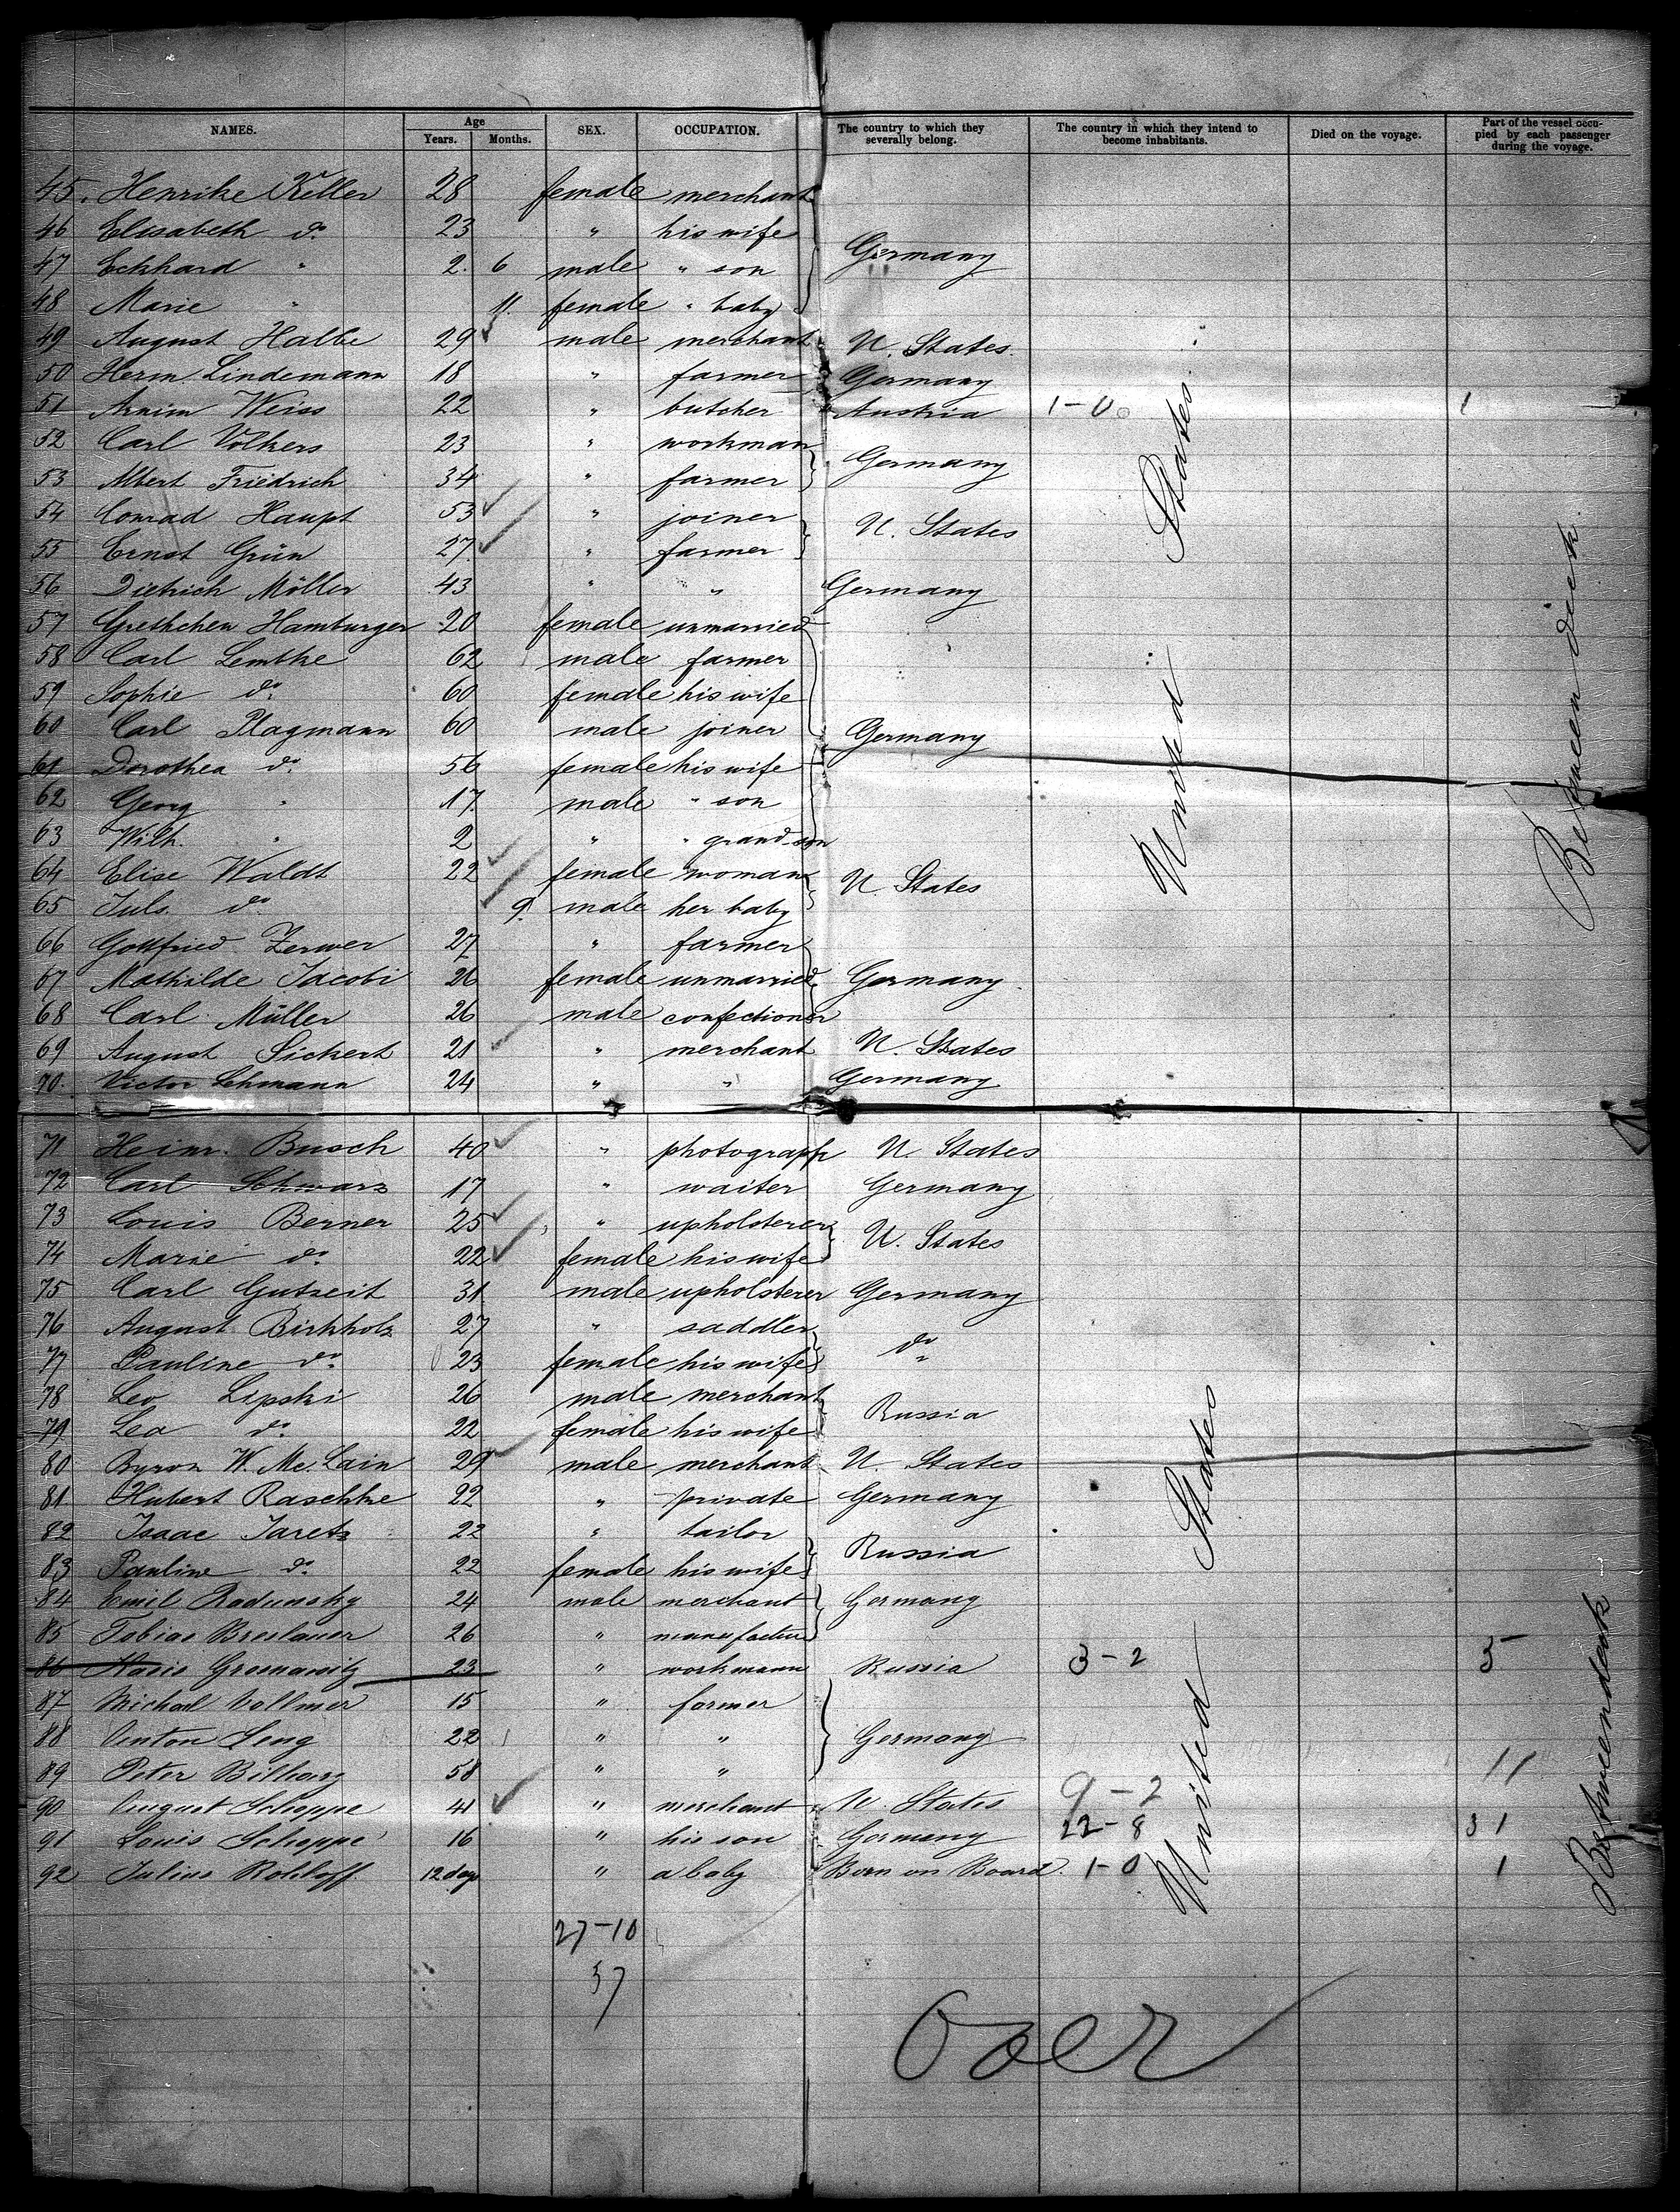 NAMES. Age Years. Months. SEX. OCCUPATION. The country to which they severally belong. The country in which they intend to become inhabitants. Died on the voyage. Part of the vessel occupied by each passenger during the voyage.
45. Henrike Keller 28 female merchant
46 Elisabeth do. 23 " his wife
47 Eckhard " 2. 6 male " son Germany
48 Marie " 11. female " baby
49 August Halbe 29 male merchant U. States.
50 Herm. Lindemann 18 " farmer Germany
51 Armin Weiss 22 " butcher Austria 1-0 1
52 Carl Volkers 23 " workman
53 Albert Friedrich 34 " farmer Germany
54 Conrad Haupt 53 " joiner
55 Ernst Grün 27 " farmer U. States
56 Dietrich Möller 43 " " Germany
57 Grethchen Hamburger 20 female unmarried
58 Carl Lembke 62 male farmer
59 Sophie do. 60 female his wife
60 Carl Plagmann 60 male joiner Germany
61 Dorothea do. 56 female his wife
62 Georg " 17 male " son
63 Wilh. " 2 " " grand-son
64 Elise Waldt 22 female woman U. States
65 Juls. do. 9. male her baby
66 Gottfried Zerwer 27 " farmer
67 Mathilde Jacobi 26 female unmarried Germany
68 Carl Müller 26 male confectioner
69 August Sickert 21 " merchant U. States
70. Victor Lehmann 24 " " Germany
United States
Between deck
71 Heinr. Busch 40 " photograph U States
72 Carl Schwarz 17 " waiter Germany
73 Louis Berner 25 " upholsterer U. States
74 Marie do. 22 female his wife
75 Carl Gutzeit 31 male upholsterer Germany
76 August Birkholz 27 " saddler do
77 Pauline do. 23 female his wife
78 Leo Lipski 26 male merchant Russia
79 Lea do. 22 female his wife
80 Byron W. Mc. Lain 29 male merchant U. States
81 Hubert Raschke 22 " private Germany
82 Isaac Jaretz 22 " tailor Russia
83 Pauline do. 22 female his wife
84 Emil Radunsky 24 male merchant Germany
85 Tobias Breslauer 26 " manufacture
86 23 " workmann Russia 3-2 5
87 Michael Vollmer 15 " farmer
88 Anton Leng 22 " " Germany
89 Peter 58 " " 11
90 August Schoppe 41 " merchant U. States 9-2
91 Louis Schoppe 16 " his son Germany 22-8 31
92 Julius Rohloff 12 days " a baby Born on Board 1-0 1
United States
Betweendeck
27-10
37
Over